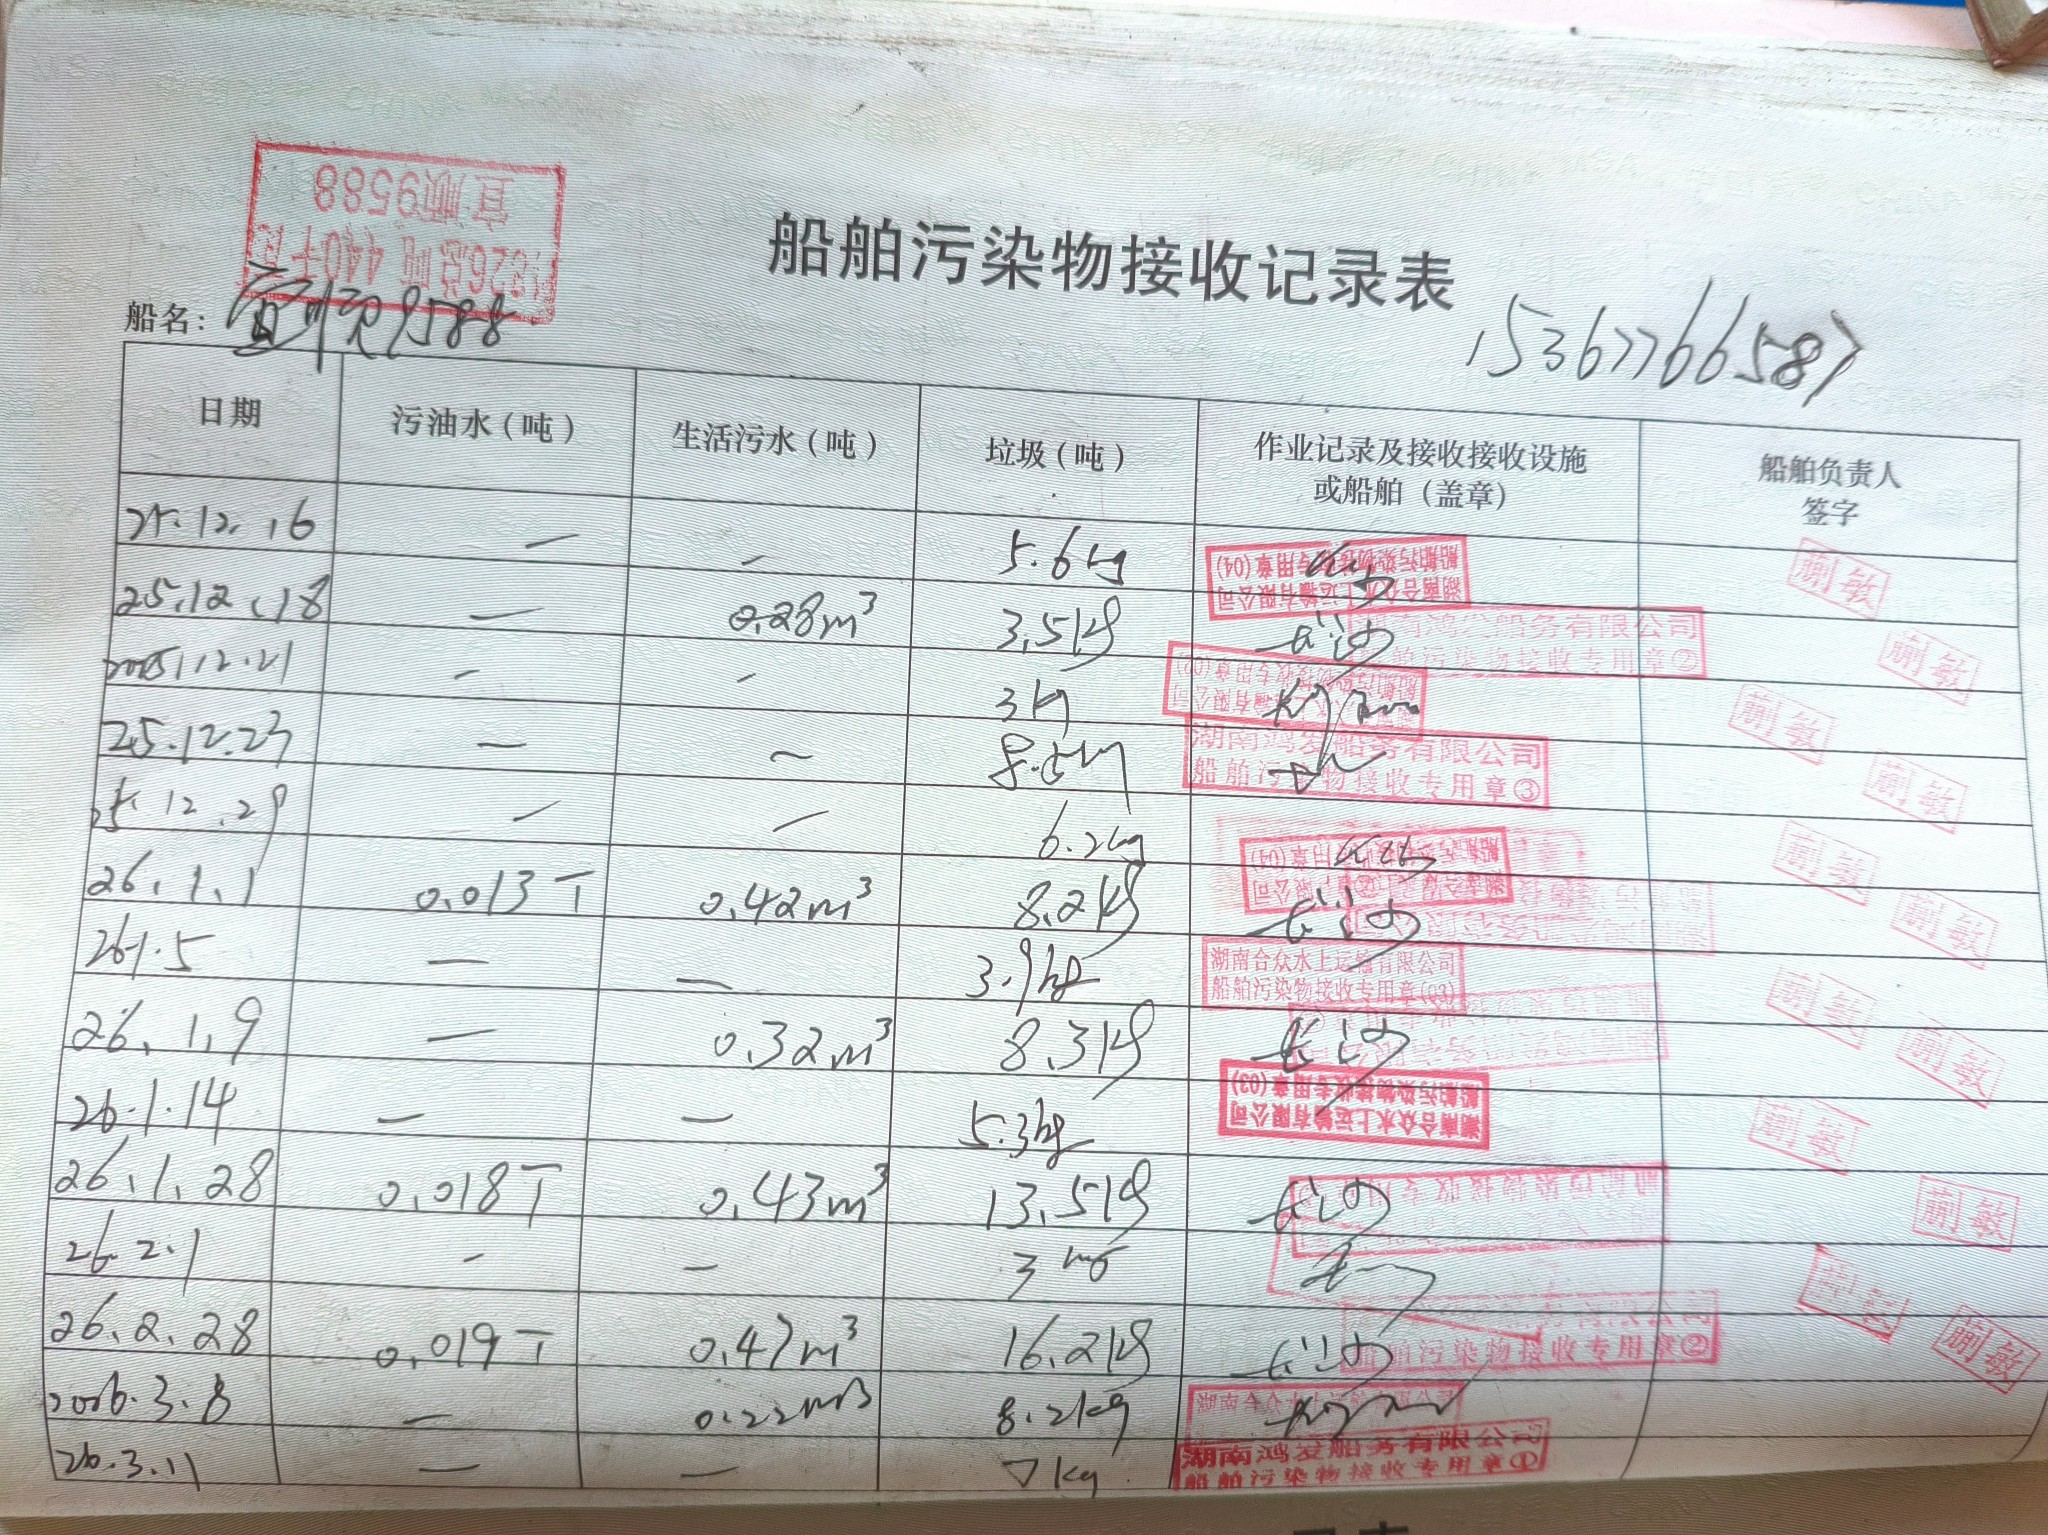 宜顺9588
1326总吨 440千瓦
船舶污染物接收记录表
船名: 宜顺9588
15367766587
日期 污油水(吨) 生活污水(吨) 垃圾(吨) 作业记录及接收接收设施或船舶(盖章) 船舶负责人签字
25.12.16 — — 5.6kg 湖南合众水上运输有限公司 船舶污染物接收专用章(04) 蒯敏
25.12.18 — 0.28m³ 3.5kg 长沙 湖南鸿发船务有限公司 船舶污染物接收专用章② 蒯敏
2025.12.21 — — 3kg 船舶污染物接收专用章(02) 蒯敏
25.12.23 — — 8.5kg 湖南鸿发船务有限公司 船舶污染物接收专用章③ 蒯敏
25.12.29 — — 6.2kg 船舶污染物接收专用章(04) 蒯敏
26.1.1 0.013T 0.42m³ 8.2kg 长沙 蒯敏
26.1.5 — — 3.9kg 湖南合众水上运输有限公司 船舶污染物接收专用章(03) 蒯敏
26.1.9 — 0.32m³ 8.3kg 长沙 蒯敏
26.1.14 — — 5.3kg 湖南合众水上运输有限公司 船舶污染物接收专用章(03) 蒯敏
26.1.28 0.018T 0.43m³ 13.5kg 长沙 蒯敏
26.2.1 — — 3kg 蒯敏
26.2.28 0.019T 0.47m³ 16.2kg 长沙 船舶污染物接收专用章② 蒯敏
2026.3.8 — 0.22m3 8.2kg
26.3.11 — — 7kg 湖南鸿发船务有限公司 船舶污染物接收专用章①